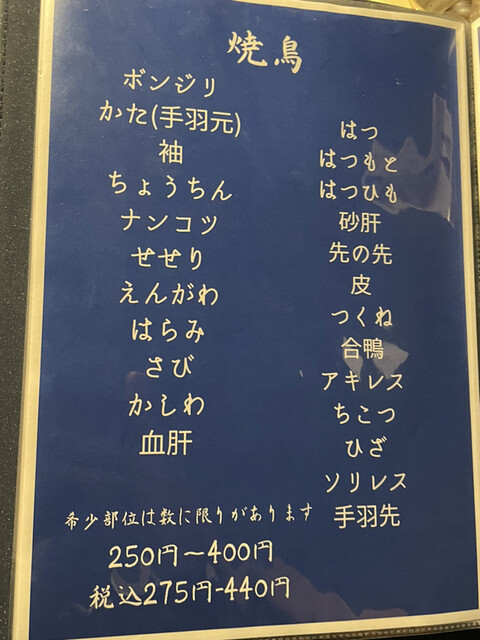 焼鳥
ボンジリ
かた(手羽元)
袖
ちょうちん
ナンコツ
せせり
えんがわ
はらみ
さび
かしわ
血肝
はつ
はつもと
はつひも
砂肝
先の先
皮
つくね
合鴨
アキレス
ちこつ
ひざ
ソリレス
手羽先
希少部位は数に限りがあります
250円〜400円
税込275円-440円